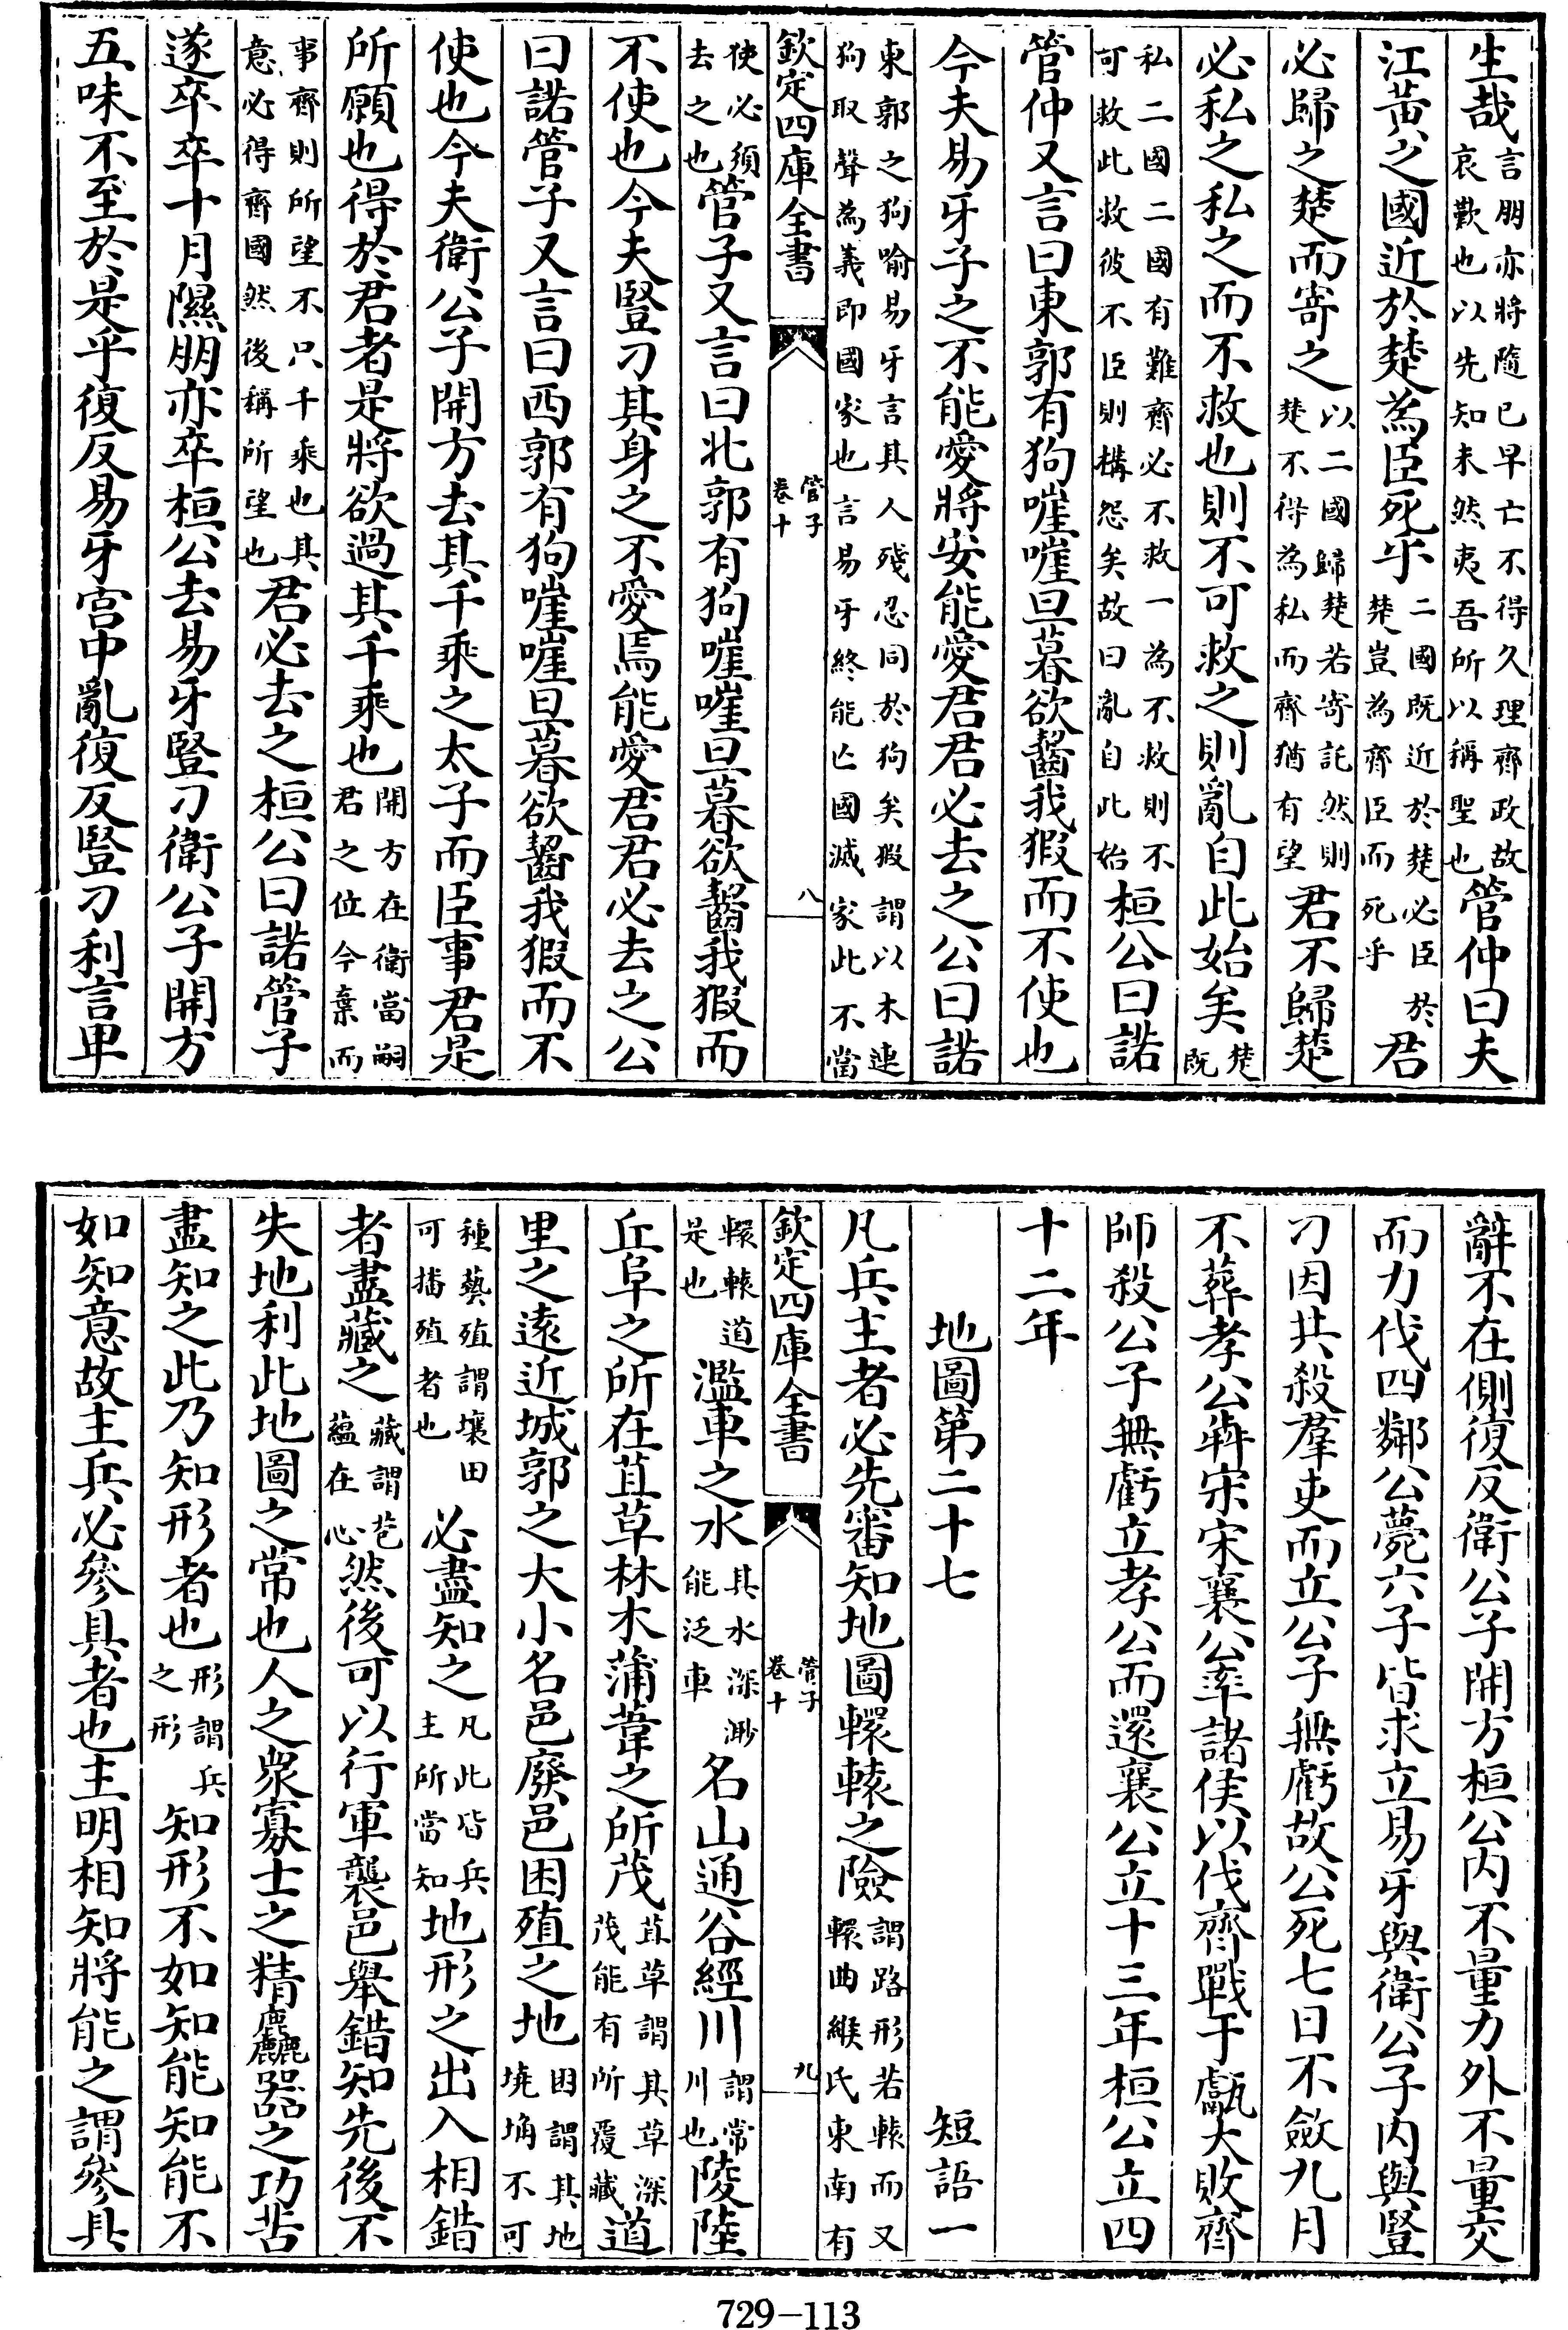 生哉言朋亦將隨已早亡不得久理齊政故哀歎也以先知未然夷吾所以稱聖也管仲曰夫
江黃之國近於楚為臣死乎二國既近於楚必臣於楚豈為齊臣而死乎君
必歸之楚而寄之以二國歸楚若寄託然則楚不得為私而齊猶有望君不歸楚
必私之私之而不救也則不可救之則亂自此始矣楚既
私二國二國有難齊必不救一為不救則不可救此救彼不臣則構怨矣故曰亂自此始桓公曰諾
管仲又言曰東郭有狗嘊嘊旦暮欲齧我猳而不使也
今夫易牙子之不能愛將安能愛君君必去之公曰諾
東郭之狗喻易牙言其人殘忍同於狗矣猳謂以木連狗取聲為義即國家也言易牙終能亡國滅家此不當
欽定四庫全書 管子卷十 八
使必須去之也管子又言曰北郭有狗嘊嘊旦暮欲齧我猳而
不使也今夫豎刁其身之不愛焉能愛君君必去之公
曰諾管子又言曰西郭有狗嘊嘊旦暮欲齧我猳而不
使也今夫衛公子開方去其千乘之太子而臣事君是
所願也得於君者是將欲過其千乘也開方在衛當嗣君之位今棄而
事齊則所望不只千乘也其意必得齊國然後稱所望也君必去之桓公曰諾管子
遂卒卒十月隰朋亦卒桓公去易牙豎刁衛公子開方
五味不至於是乎復反易牙宫中亂復反豎刁利言卑
辭不在側復反衛公子開方桓公内不量力外不量交
而力伐四鄰公薨六子皆求立易牙與衛公子内與豎
刁因共殺羣吏而立公子無虧故公死七日不斂九月
不葬孝公犇宋宋襄公率諸侯以伐齊戰于甗大敗齊
師殺公子無虧立孝公而還襄公立十三年桓公立四
十二年
地圖第二十七 短語一
凡兵主者必先審知地圖轘轅之險謂路形若轅而又轘曲緱氏東南有
欽定四庫全書 管子卷十 九
轘轅道是也濫車之水其水深渺能泛車名山通谷經川謂常川也陵陸
丘阜之所在苴草林木蒲葦之所茂苴草謂其草深茂能有所覆藏道
里之遠近城郭之大小名邑廢邑困殖之地困謂其地墝埆不可
種藝殖謂壤田可播殖者也必盡知之凡此皆兵主所當知地形之出入相錯
者盡藏之藏謂苞蘊在心然後可以行軍襲邑舉錯知先後不
失地利此地圖之常也人之衆寡士之精麤器之功苦
盡知之此乃知形者也形謂兵之形知形不如知能知能不
如知意故主兵必參具者也主明相知將能之謂參具
729－113